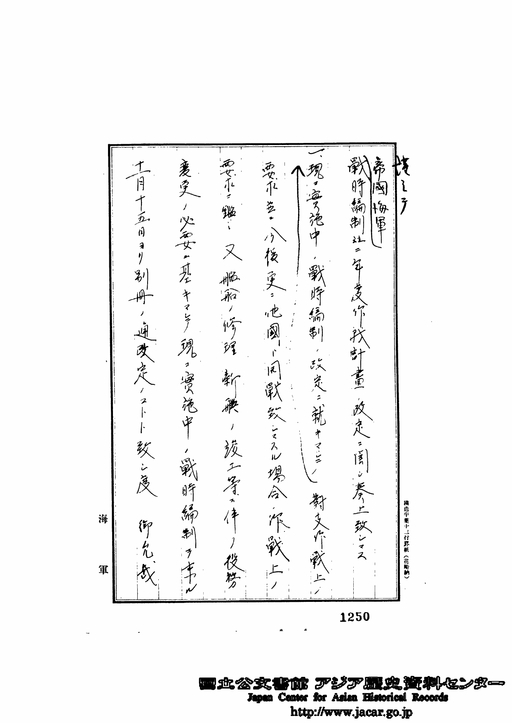 謹ミテ
帝國海軍
戰時編制竝ニ年度作戰計畫改定ニ關シ奏上致シマス
一、現ニ實施中ノ戰時編制ノ改定ニ就キマシテ 對支作戰上ノ
要求竝ニ今後更ニ他國ト開戰致シマスル場合ノ作戰上ノ
要求ニ鑑ミ 又艦船ノ修理 新艦ノ竣工等ニ伴フ役務
變更ノ必要ニ基キマシテ 現ニ實施中ノ戰時編制ヲ來ル
十一月十五日ヨリ別册ノ通改定ノコトト致シ度 御允裁
海軍
1250
國立公文書館 アジア歷史資料センター
Japan Center for Asian Historical Records
http://www.jacar.go.jp